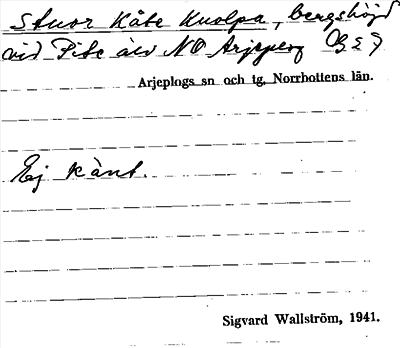 Stuor Kåte Kuolpa, bergshöjd
vid Pite älv NO Arjeplog
Arjeplogs sn och tg, Norrbottens län.
Ej känt.
Sigvard Wallström, 1941.